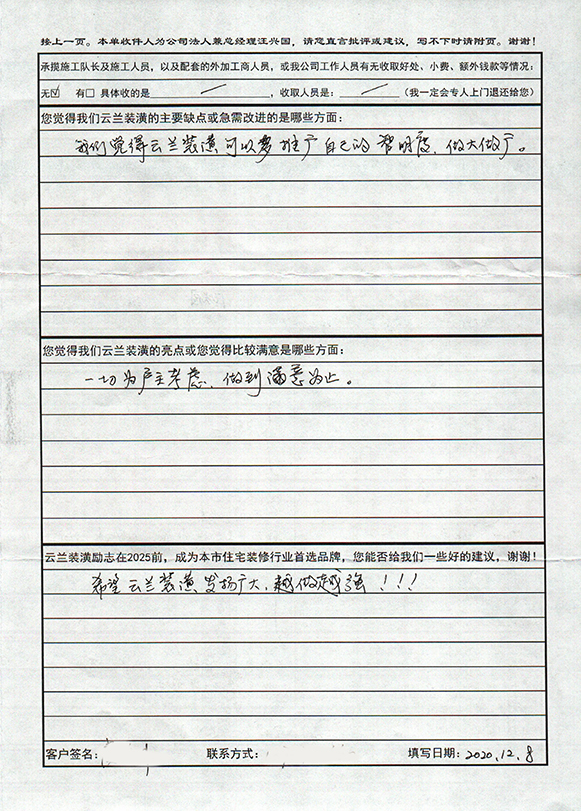 接上一页。本单收件人为公司法人兼总经理汪兴国，请您直言批评或建议，写不下时请附页。谢谢！
承揽施工队长及施工人员，以及配套的外加工商人员，或我公司工作人员有无收取好处、小费、额外钱款等情况：
无☑ 有□ 具体收的是 ，收取人员是： （我一定会专人上门退还给您）
您觉得我们云兰装潢的主要缺点或急需改进的是哪些方面：
我们觉得云兰装潢可以多推广自己的 明度，做大做广。
您觉得我们云兰装潢的亮点或您觉得比较满意是哪些方面：
一切为户主考虑，做到满意为止。
云兰装潢励志在2025前，成为本市住宅装修行业首选品牌，您能否给我们一些好的建议，谢谢！
希望云兰装潢发扬广大，越做越强！！！
客户签名： 联系方式： 填写日期：2020.12.8